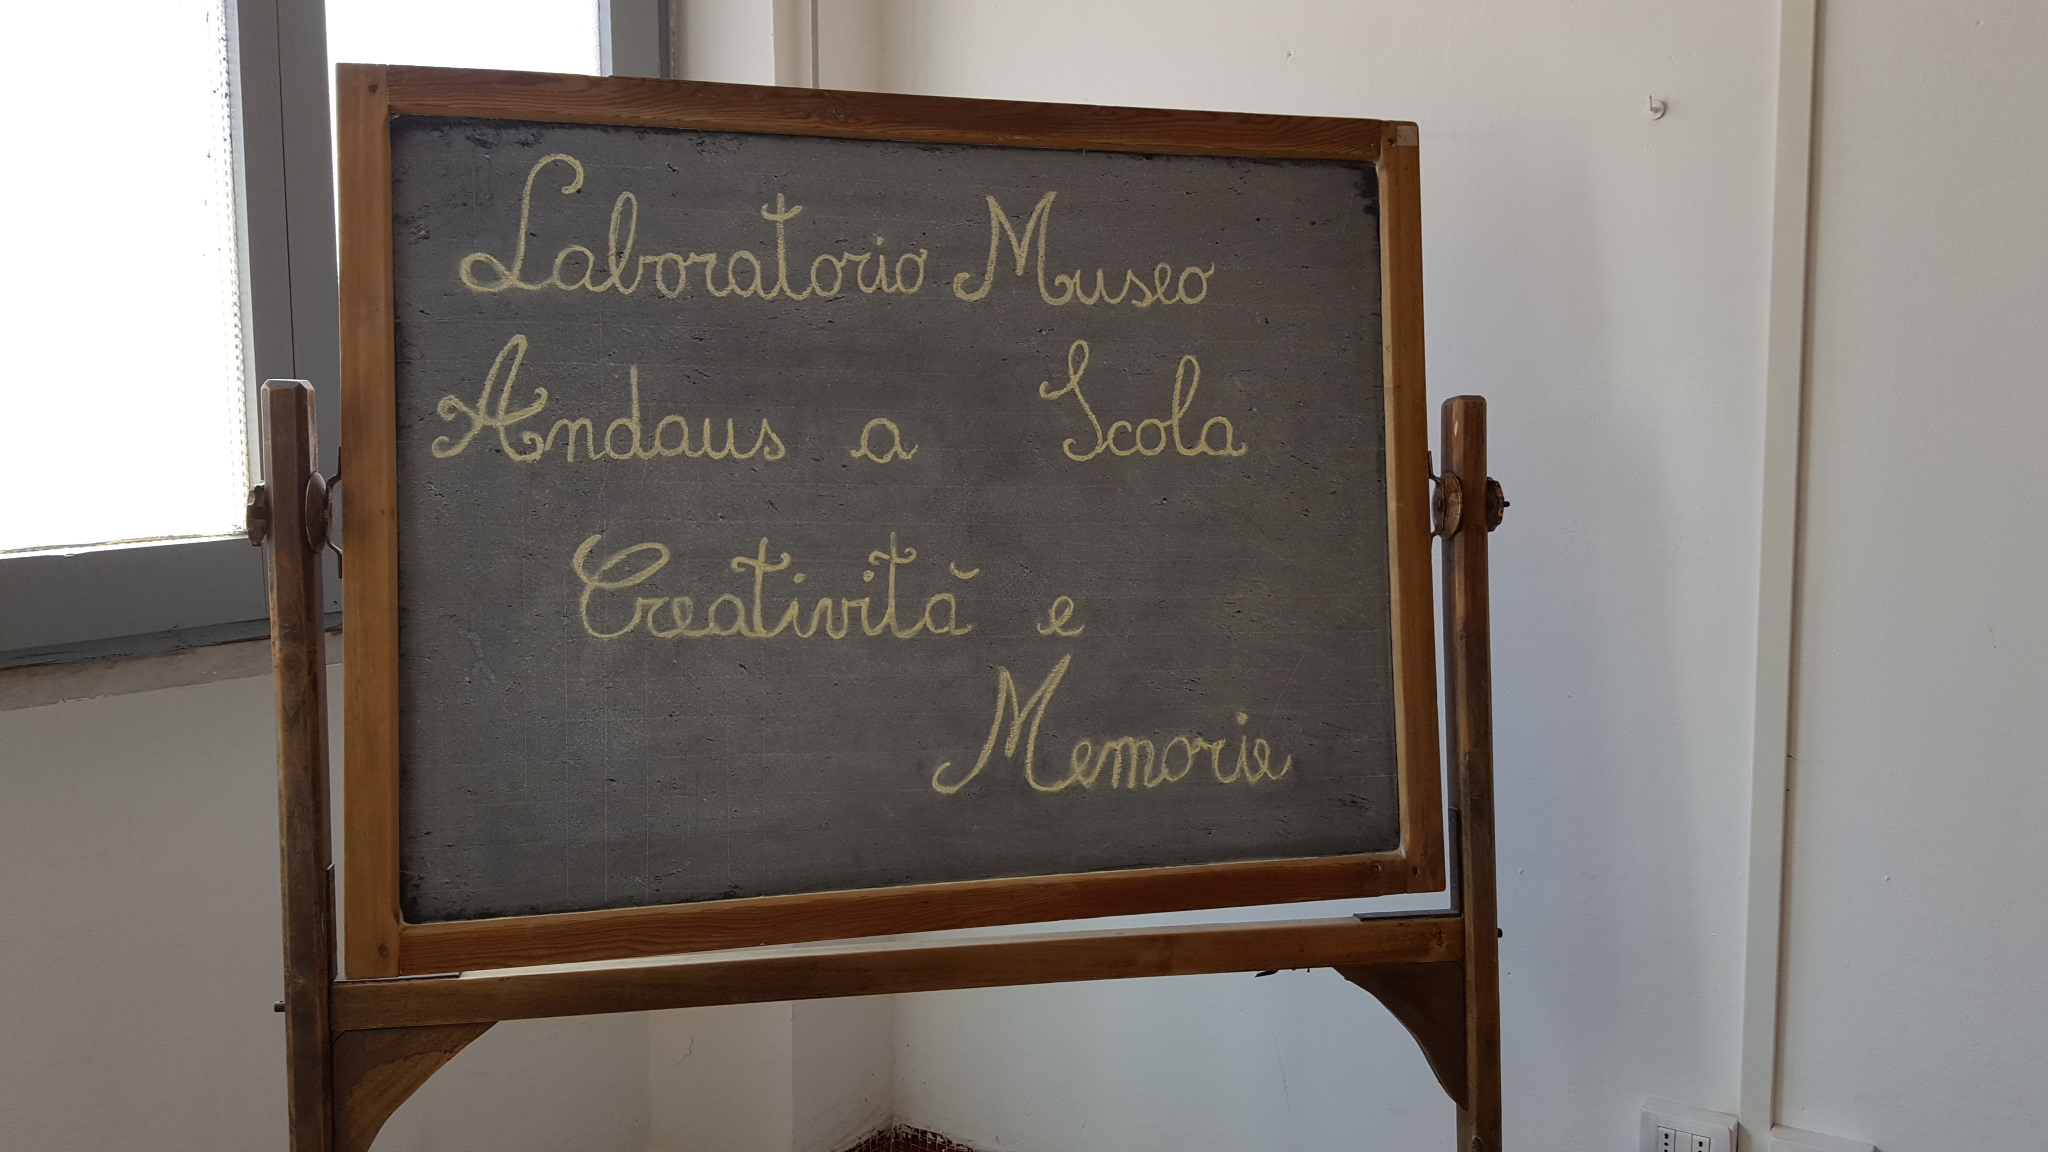 Laboratorio Museo
Andaus a Scola
Creatività e
Memorie